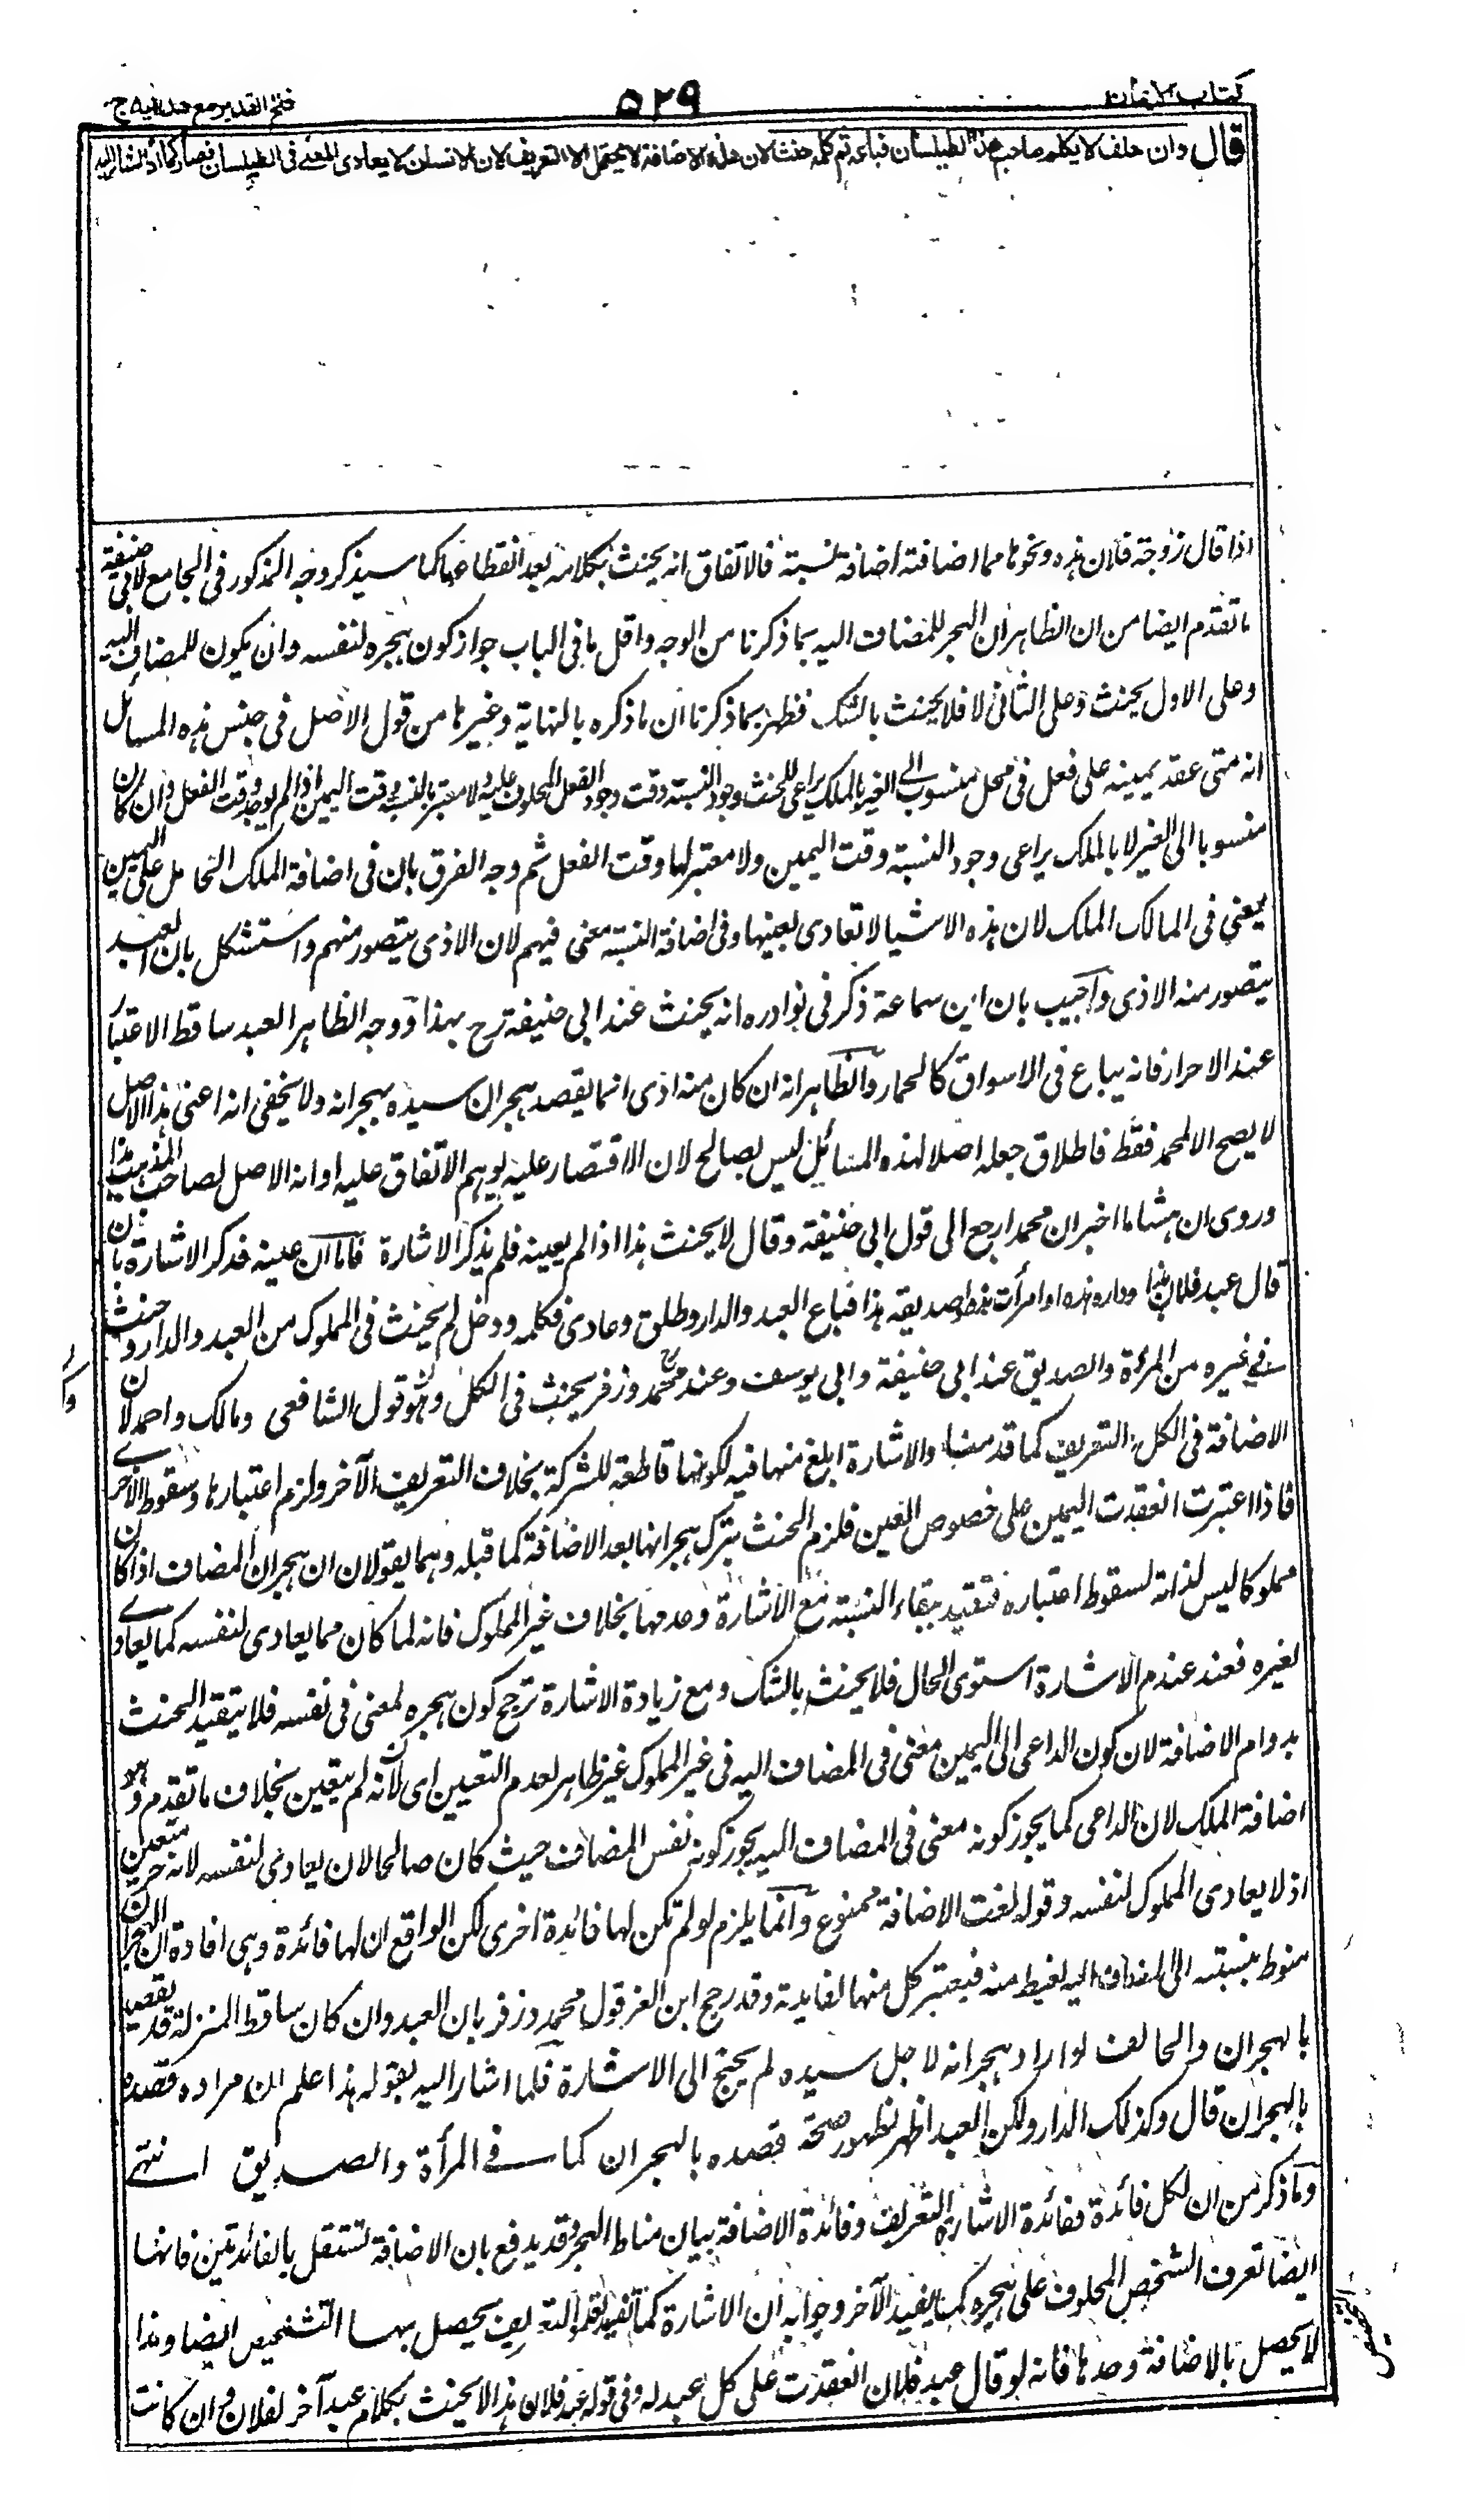 كتاب الايمان
٥٢٩
فتح القدير مع هدايه ج
قال وان حلف لا يكلم صاحب هذا الطيلسان فباعه ثم كلمه حنث لان هذه الاضافة لا يحتمل الا التعريف لان الانسان لا يعادى لمعنى فى الطيلسان فصار كما اذا اشار اليه
اذا قال زوجة فلان هذه ونحوها مما اضافته اضافة نسبة فالاتفاق انه يحنث بكلامه بعد انقطاعها كما سيذكر وجه المذكور فى الجامع لابى حنيفة
ما تقدم ايضا من ان الظاهر ان الهجر للمضاف اليه بما ذكرنا من الوجه واقل ما فى الباب جواز كون هجره لنفسه وان يكون للمضاف اليه
وعلى الاول يحنث وعلى الثانى لا فلا يحنث بالشك فظهر بما ذكرنا ان ما ذكره بالنهاية وغيرها من قول الاصل فى جنس هذه المسائل
انه متى عقد يمينه على فعل فى محل منسوب الى الغير بالملك يراعى للحنث وجود النسبة وقت وجود الفعل المحلوف عليه ولا معتبر بالنسبة وقت اليمين اذا لم يوجد وقت الفعل وان كان
منسوبا الى الغير لا بالملك يراعى وجود النسبة وقت اليمين ولا معتبر لها وقت الفعل ثم وجه الفرق بان فى اضافة الملك الحامل على اليمين
لمعنى فى المالك الملك لان هذه الاشيا لا تعادى لعينها وفى اضافة النسبة معنى فيهم لان الاذى يتصور منهم واستشكل بان العبد
يتصور منه الاذى واجيب بان ابن سماعة ذكر فى نوادره انه يحنث عند ابى حنيفة رح بهذا ووجه الظاهر العبد ساقط الاعتبار
عند الاحرار فانه يباع فى الاسواق كالحمار والظاهر انه ان كان منه اذى انما يقصد هجران سيده بهجرانه ولا يخفى انه اعنى هذا الاصل
لا يصح الا لمحمد فقط فاطلاق جعله اصلا لهذه المسائل ليس بصالح لان الاقتصار عليه يوهم الاتفاق عليه او انه الاصل لصاحب المذهب هذا
وروى ان هشاما اخبر ان محمدا رجع الى قول ابى حنيفة وقال لا يحنث هذا اذا لم يعينه فلم يذكر الاشارة فاما ان عينه فذكر الاشارة بان
قال عبد فلان هذا او داره هذه او امرأته هذه او صديقه هذا فباع العبد والدار وطلق وعادى فكلمه ودخل لم يحنث فى المملوك من العبد والدار وحنث
فى غيره من المرأة والصديق عند ابى حنيفة وابى يوسف وعند محمد وزفر يحنث فى الكل وهو قول الشافعى ومالك واحمد لان
الاضافة فى الكل للتعريف كما قدمنا والاشارة ابلغ منها فيه لكونها قاطعة للشركة بخلاف التعريف الآخر ولزم اعتبارها وسقوط الاخرى
فاذا اعتبرت انعقدت اليمين على خصوص العين فلزم الحنث بترك هجرانها بعد الاضافة كما قبله وهما يقولان ان هجران المضاف اذا كان
مملوكا ليس لذاته لسقوط اعتباره فتقيد ببقاء النسبة مع الاشارة وعدمها بخلاف غير المملوك فانه لما كان مما يعادى لنفسه كما يعادى
لغيره فعند عدم الاشارة استوى الحال فلا يحنث بالشك ومع زيادة الاشارة ترجح كون هجره لمعنى فى نفسه فلا يتقيد الحنث
بدوام الاضافة لان كون الداعى الى اليمين معنى فى المضاف اليه فى غير المملوك غير ظاهر لعدم التعيين اى لانه لم يتعين بخلاف ما تقدم وهو
اضافة الملك لان الداعى كما يجوز كونه معنى فى المضاف اليه يجوز كونه نفس المضاف حيث كان صالحا لان يعادى لنفسه لانه حر متعين
اذ لا يعادى المملوك لنفسه وقوله لغت الاضافة ممنوع وانما يلزم لو لم تكن لها فائدة اخرى لكن الواقع ان لها فائدة وهى افادة ان الهجران
منوط بنسبته الى المضاف اليه لغيظ منه فيعتبر كل منهما لفايدته وقد رجح ابن العز قول محمد وزفر بان العبد وان كان ساقط المنزلة قد يقصد
بالهجران والحالف لو اراد هجرانه لاجل سيده لم يحتج الى الاشارة فلما اشار اليه بقوله هذا علم ان مراده قصده
بالهجران قال وكذلك الدار ولكن العبد اظهر لظهور صحة قصده بالهجران كما فى المرأة والصديق انتهى
وما ذكر من ان لكل فائدة ففائدة الاشارة التعريف وفائدة الاضافة بيان مناط الهجر وقد يدفع بان الاضافة تستقل بالفائدتين فانها
ايضا تعرف الشخص المحلوف على هجره كما يفيد الآخر وجوابه ان الاشارة كما تفيد التعريف يحصل بها التشخيص ايضا وهذا
لا يحصل بالاضافة وحدها فانه لو قال عبد فلان انعقدت على كل عبد له وفى قوله عبد فلان هذا لا يحنث بكلام عبد آخر لفلان وان كانت